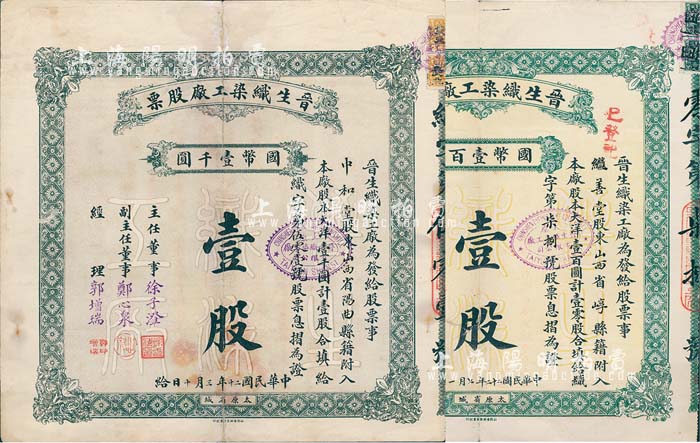 晉生織染工廠股票
國幣壹千圓
晉生織染工廠為發給股票事
中和堂股東山西省陽曲縣籍附入
本廠股本大洋壹千圓計壹股合填給
織字第伍
號股票息摺為證
壹股
主任董事徐子澄
副主任董事鄭心泉
經理郭增瑞
中華民國二十二年
月十日給
太原省城
晉生織染工廠
國幣壹百
晉生織染工廠為發給股票事
繼善堂股東山西省崞縣籍附入
本廠股本大洋壹百圓計壹零股合填給織
字第柒捌號股票息摺為證
壹股
中華民國二十二年
月
太原省城
上海陽明拍賣